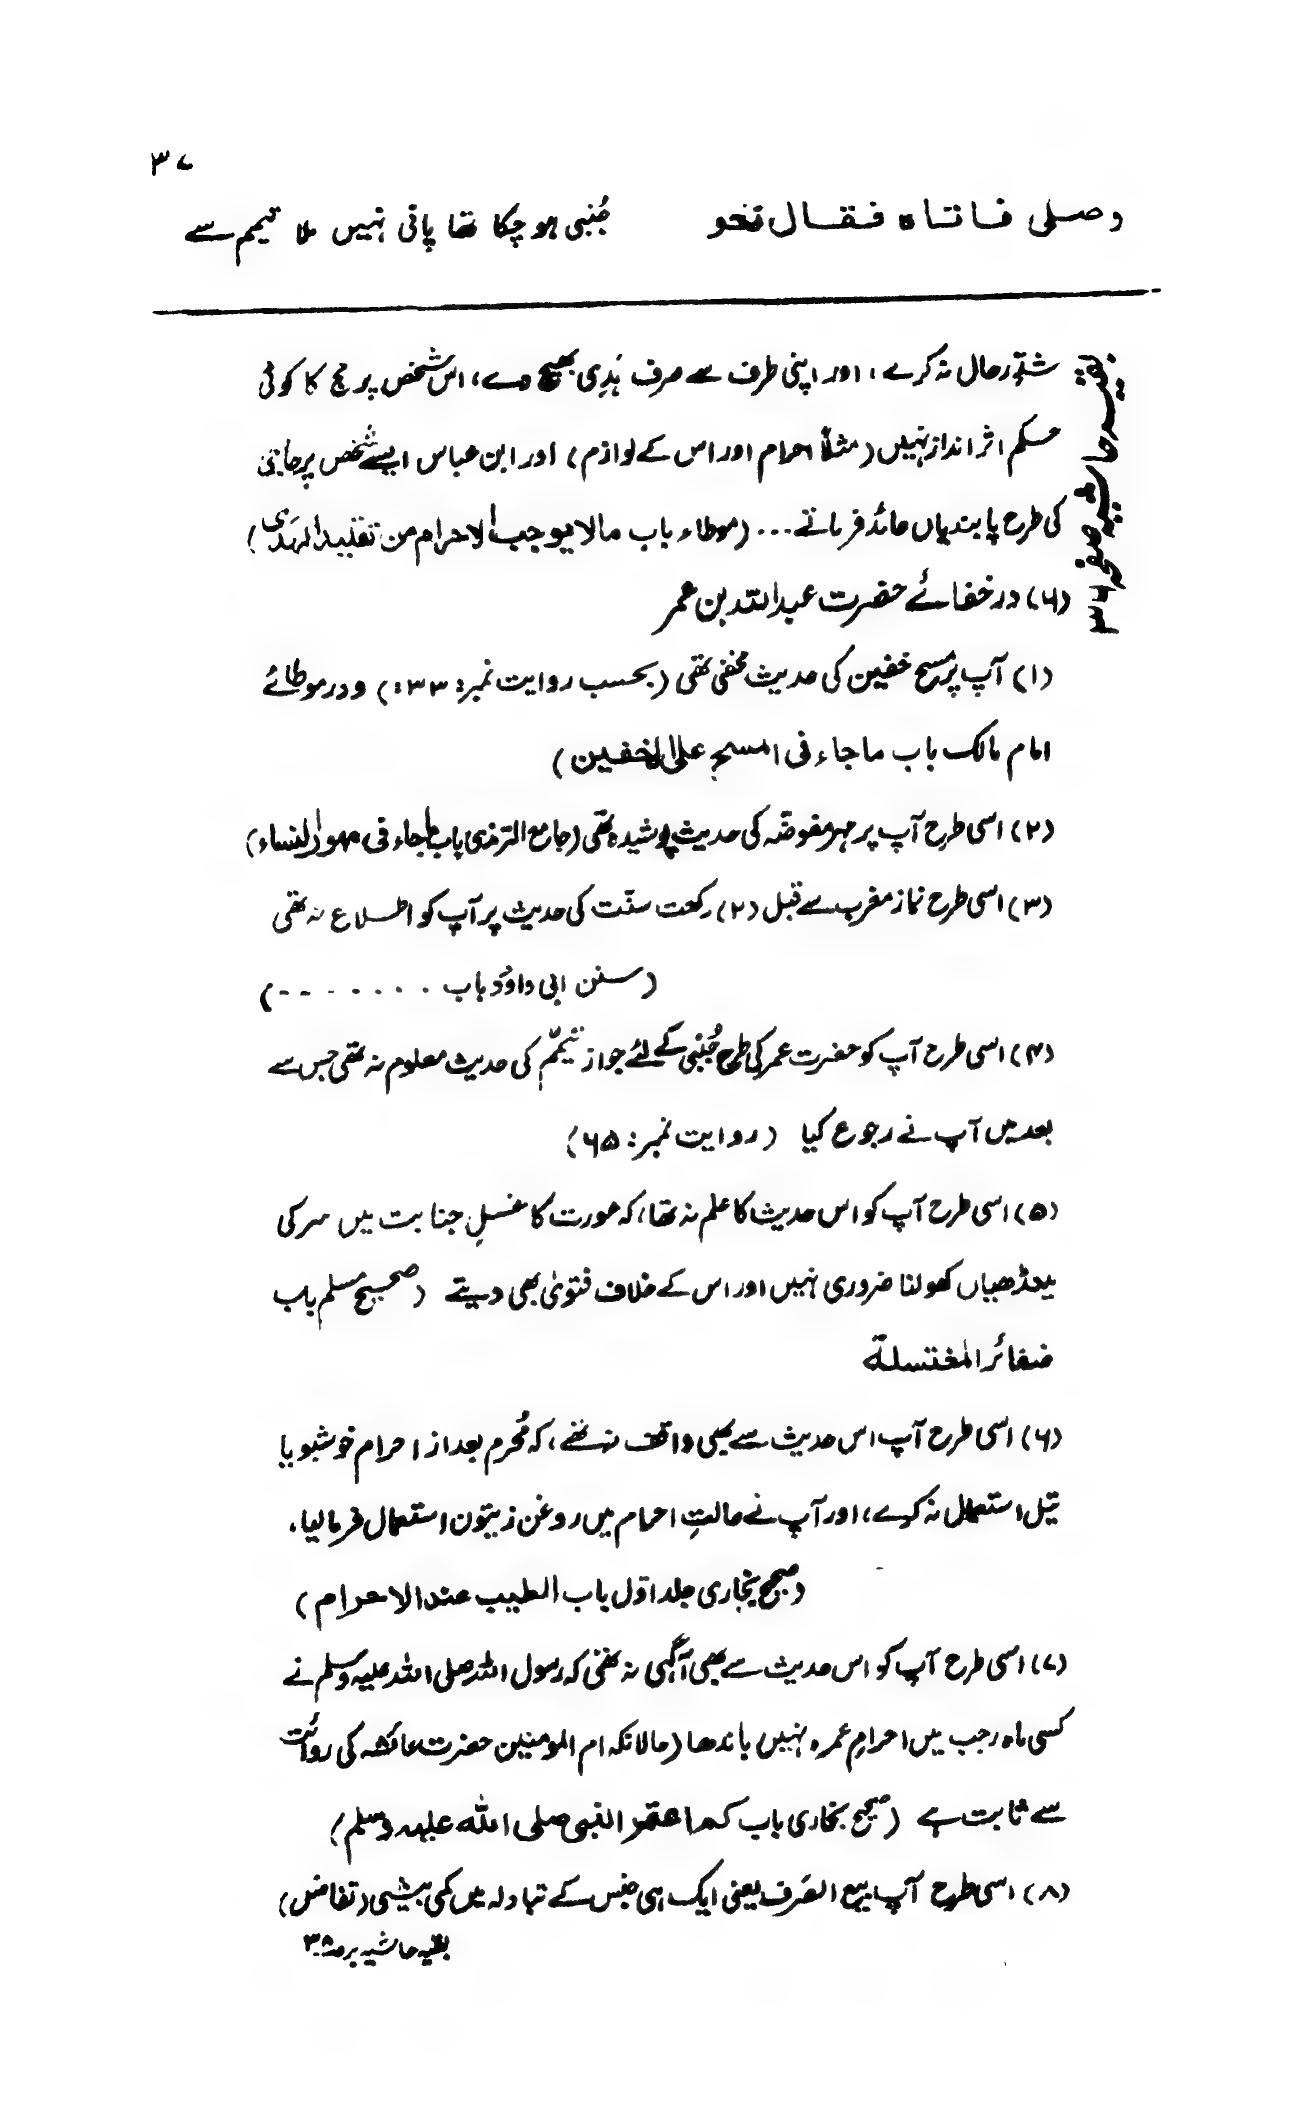 ۳۷
وصلی فاتاہ فقال نحو
جُنبی ہو چکا تھا پانی نہیں ملا تیمم سے
بقیہ حاشیہ صفحہ ۳۶
شدِّ رحال نہ کرے، اور اپنی طرف سے صرف ہَدِی بھیج دے، اس شخص پر حج کا کوئی
حکم اثر انداز نہیں (مثلاً احرام اور اس کے لوازم) اور ابن عباس ایسے شخص پر حاجی
کی طرح پابندیاں عائد فرماتے... (موطاء باب مالا یوجب الاحرام من تقلید الھَدی)
(۶) در خفائے حضرت عبداللہ بن عمر
(۱) آپ پر مسح خفین کی حدیث مخفی تھی (بحسب روایت نمبر: ۳۳:) و در موطائے
امام مالک باب ما جاء فی المسح علی الخفین)
(۲) اسی طرح آپ پر مہر مفوضہ کی حدیث پوشیدہ تھی (جامع الترمذی باب ماجاء فی مھور النساء)
(۳) اسی طرح نماز مغرب سے قبل (۲) رکعت سنّت کی حدیث پر آپ کو اطلاع نہ تھی
(سنن ابی داؤد باب . . . . - - -)
(۴) اسی طرح آپ کو حضرت عمر کی طرح جُنبی کے لئے جواز تیمّم کی حدیث معلوم نہ تھی جس سے
بعد میں آپ نے رجوع کیا (روایت نمبر: ۶۵)
(۵) اسی طرح آپ کو اس حدیث کا علم نہ تھا، کہ عورت کا غسلِ جنابت میں سر کی
مینڈھیاں کھولنا ضروری نہیں اور اس کے خلاف فتویٰ بھی دیتے (صحیح مسلم باب
ضفائر المغتسلة
(۶) اسی طرح آپ اس حدیث سے بھی واقف نہ تھے، کہ مُحرم بعد از احرام خوشبو یا
تیل استعمال نہ کرے، اور آپ نے حالتِ احرام میں روغن زیتون استعمال فرمالیا.
(صحیح بخاری جلد اوّل باب الطیب عند الاحرام)
(۷) اسی طرح آپ کو اس حدیث سے بھی آگہی نہ تھی کہ رسول اللہ صلی اللہ علیہ وسلم نے
کسی ماہ رجب میں احرامِ عمرہ نہیں باندھا (حالانکہ ام المومنین حضرت عائشہ کی روائت
سے ثابت ہے (صحیح بخاری باب کم اعتمر النبی صلی اللہ علیہ وسلم)
(۸) اسی طرح آپ بیع الصَرف یعنی ایک ہی جنس کے تبادلہ میں کمی بیشی (تفاضل)
بقیہ حاشیہ بر صہ ۳۸